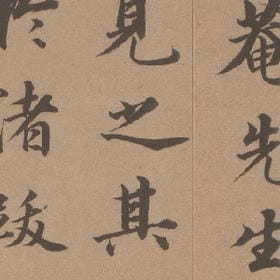 菴先生
見之其
於諸跋